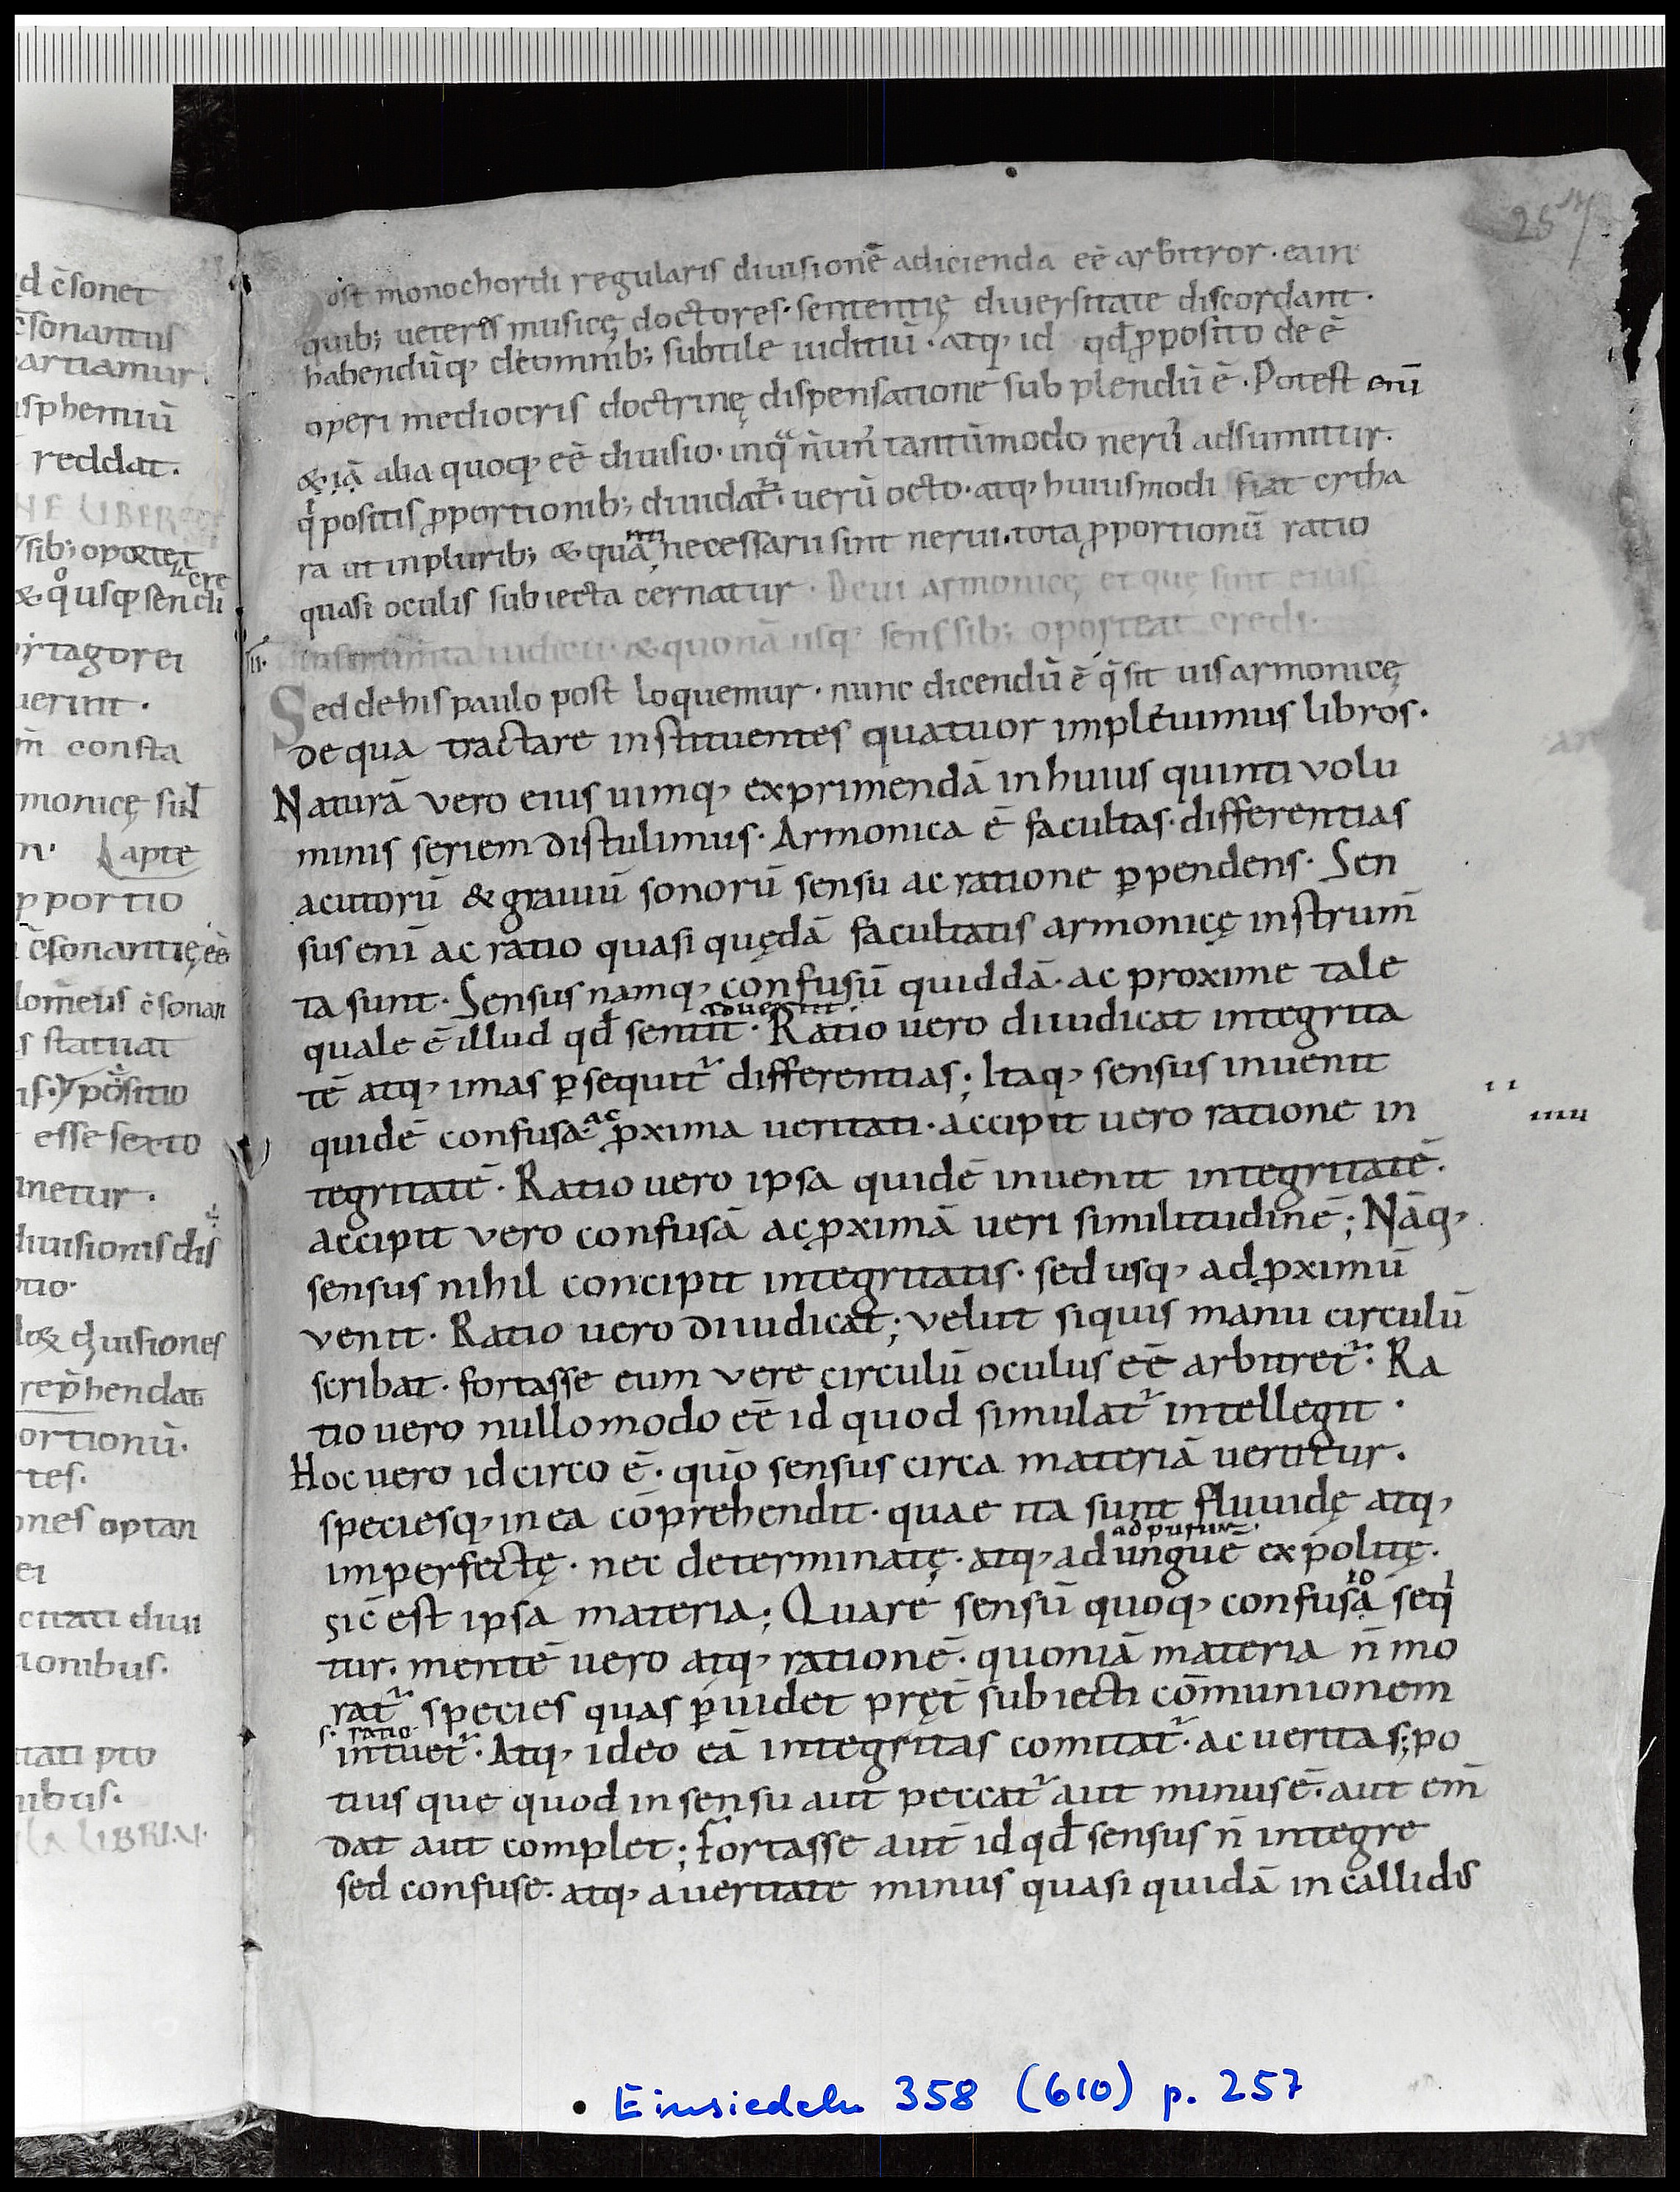 257
ost monochordi regularis diuisionē adicienda eē arbitror · ea in
quib; ueteres musicę doctores · sententię diuersitate discordant ·
habendūq, de omnib; subtile iuditiū · atq, id qd̄ ꝓposito de ē
operi mediocris doctrinę dispensatione sub plendū ē · Potest enī
& iā alia quoq, eē diuisio · in qua n̄ un' tantūmodo neru' adsumitur ·
qi positis ꝓportionib; diuidat᷑ · uerū octo · atq, huiusmodi fiat cytha
ra ut in plurib; & quā necessarii sint nerui · tota ꝓportionū ratio
quasi oculis subiecta cernatur · De ui armonicę et quę sint eius
instrumta iudicii · & quonā usq, sensib; oporteat credi ·
II ·
Sed de his paulo post loquemur · nunc dicendū ē q̄ sit uis armonicę
de qua tractare instituentes quatuor impleuimus libros ·
Naturā vero eius uimq, exprimendā in huius quinti volu
minis seriem distulimus · Armonica ē facultas · differentias
acutorū & grauiū sonorū sensu ac ratione ꝑpendens · Sen
sus enī ac ratio quasi quędā facultatis armonicę instrum̄
ta sunt · Sensus namq, confusū quiddā · ac proxime tale
aduertit ·
quale ē illud qd̄ sentit · Ratio vero diiudicat integrita
tē atq, imas ꝑsequit᷑ differentias ; Itaq, sensus inuenit
quidē confusa ac ꝓxima ueritati · accipit vero ratione in
tegritatē · Ratio vero ipsa quidē inuenit integritatē ·
accipit vero confusā ac ꝓximā ueri similitudinē ; Nāq,
sensus nihil concipit integritatis · sed usq, ad ꝓximū
venit · Ratio uero diiudicat ; velut siquis manu circulū
scribat · fortasse eum vere circulū oculus eē arbitret᷑ · Ra
tio vero nullo modo eē id quod simulat᷑ intellegit ·
Hoc vero idcirco ē · quō sensus circa materiā uertitur ·
speciesq, in ea cōprehendit · quae ita sunt fluuidę atq,
imperfectę · nec determinatę · atq, ad unguē expolitę ·
sic̄ est ipsa materia ; Quare sensū quoq, confusio seqi
tur · mentē uero atq, rationē · quoniā materia n̄ mo
rat᷑ species quas ꝑuidet pręt̄ subiecti cōmunionem
s · ratio
intuet᷑ · Atq, ideo eā integritas comitat᷑ · ac ueritas ; po
tius que quod in sensu aut peccat᷑ aut minus ē · aut em̄
dat aut complet ; Fortasse aut̄ id qd̄ sensus n̄ integre
sed confuse · atq, a ueritate minus quasi quidā in callidus
• Einsiedeln 358 (610) p. 257